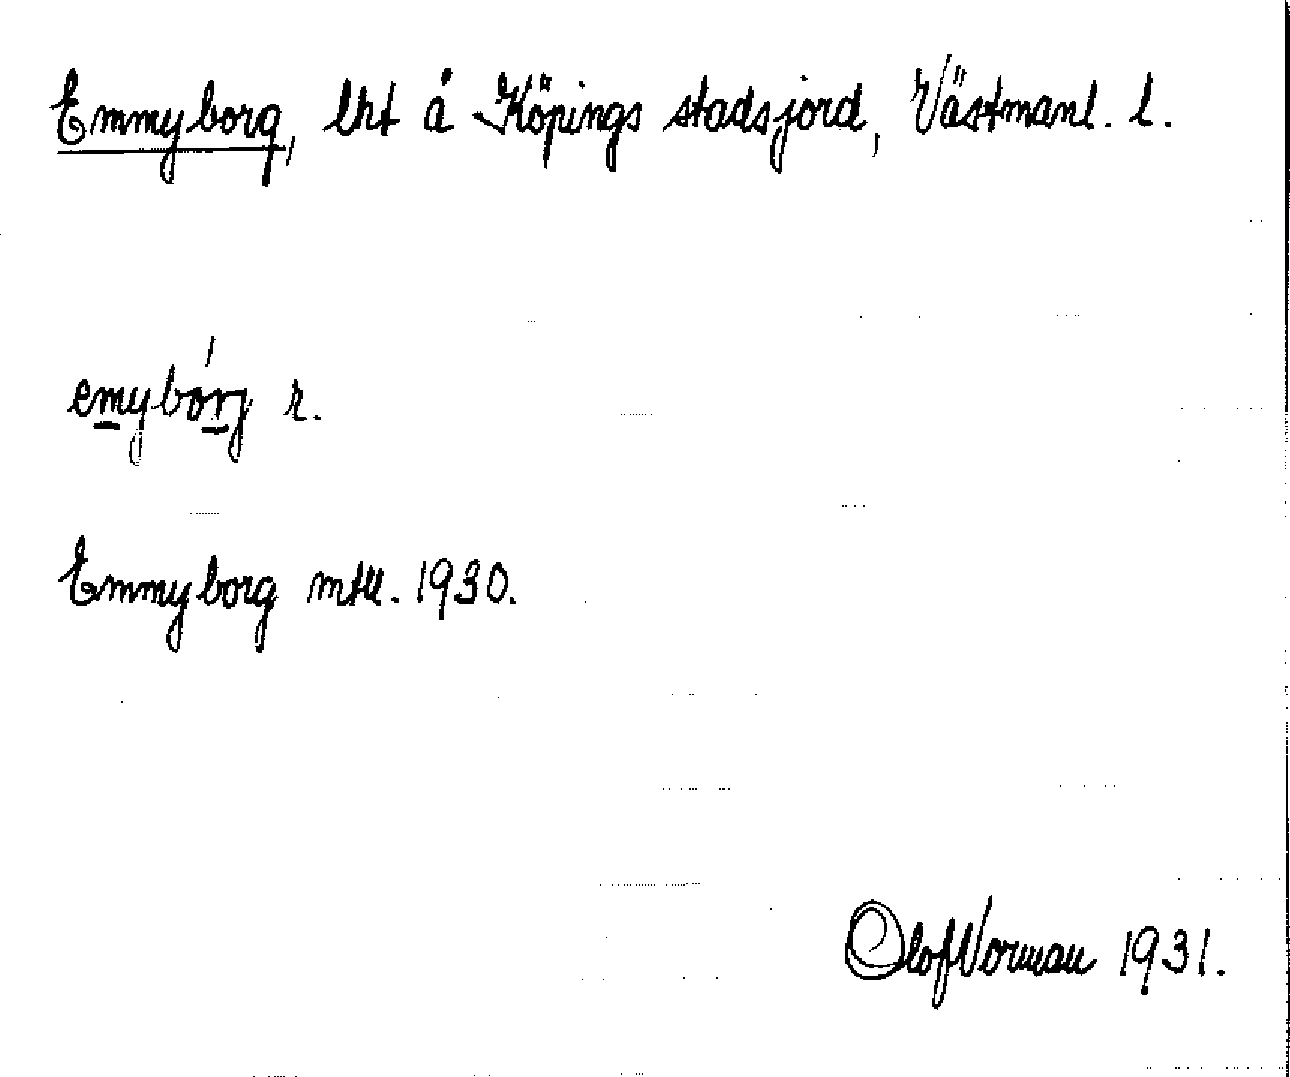 Emmyborg, lht å Köpings stadsjord, Västmanl. l.
emybórj r.
Emmyborg mtl. 1930.
Olof Norman 1931.